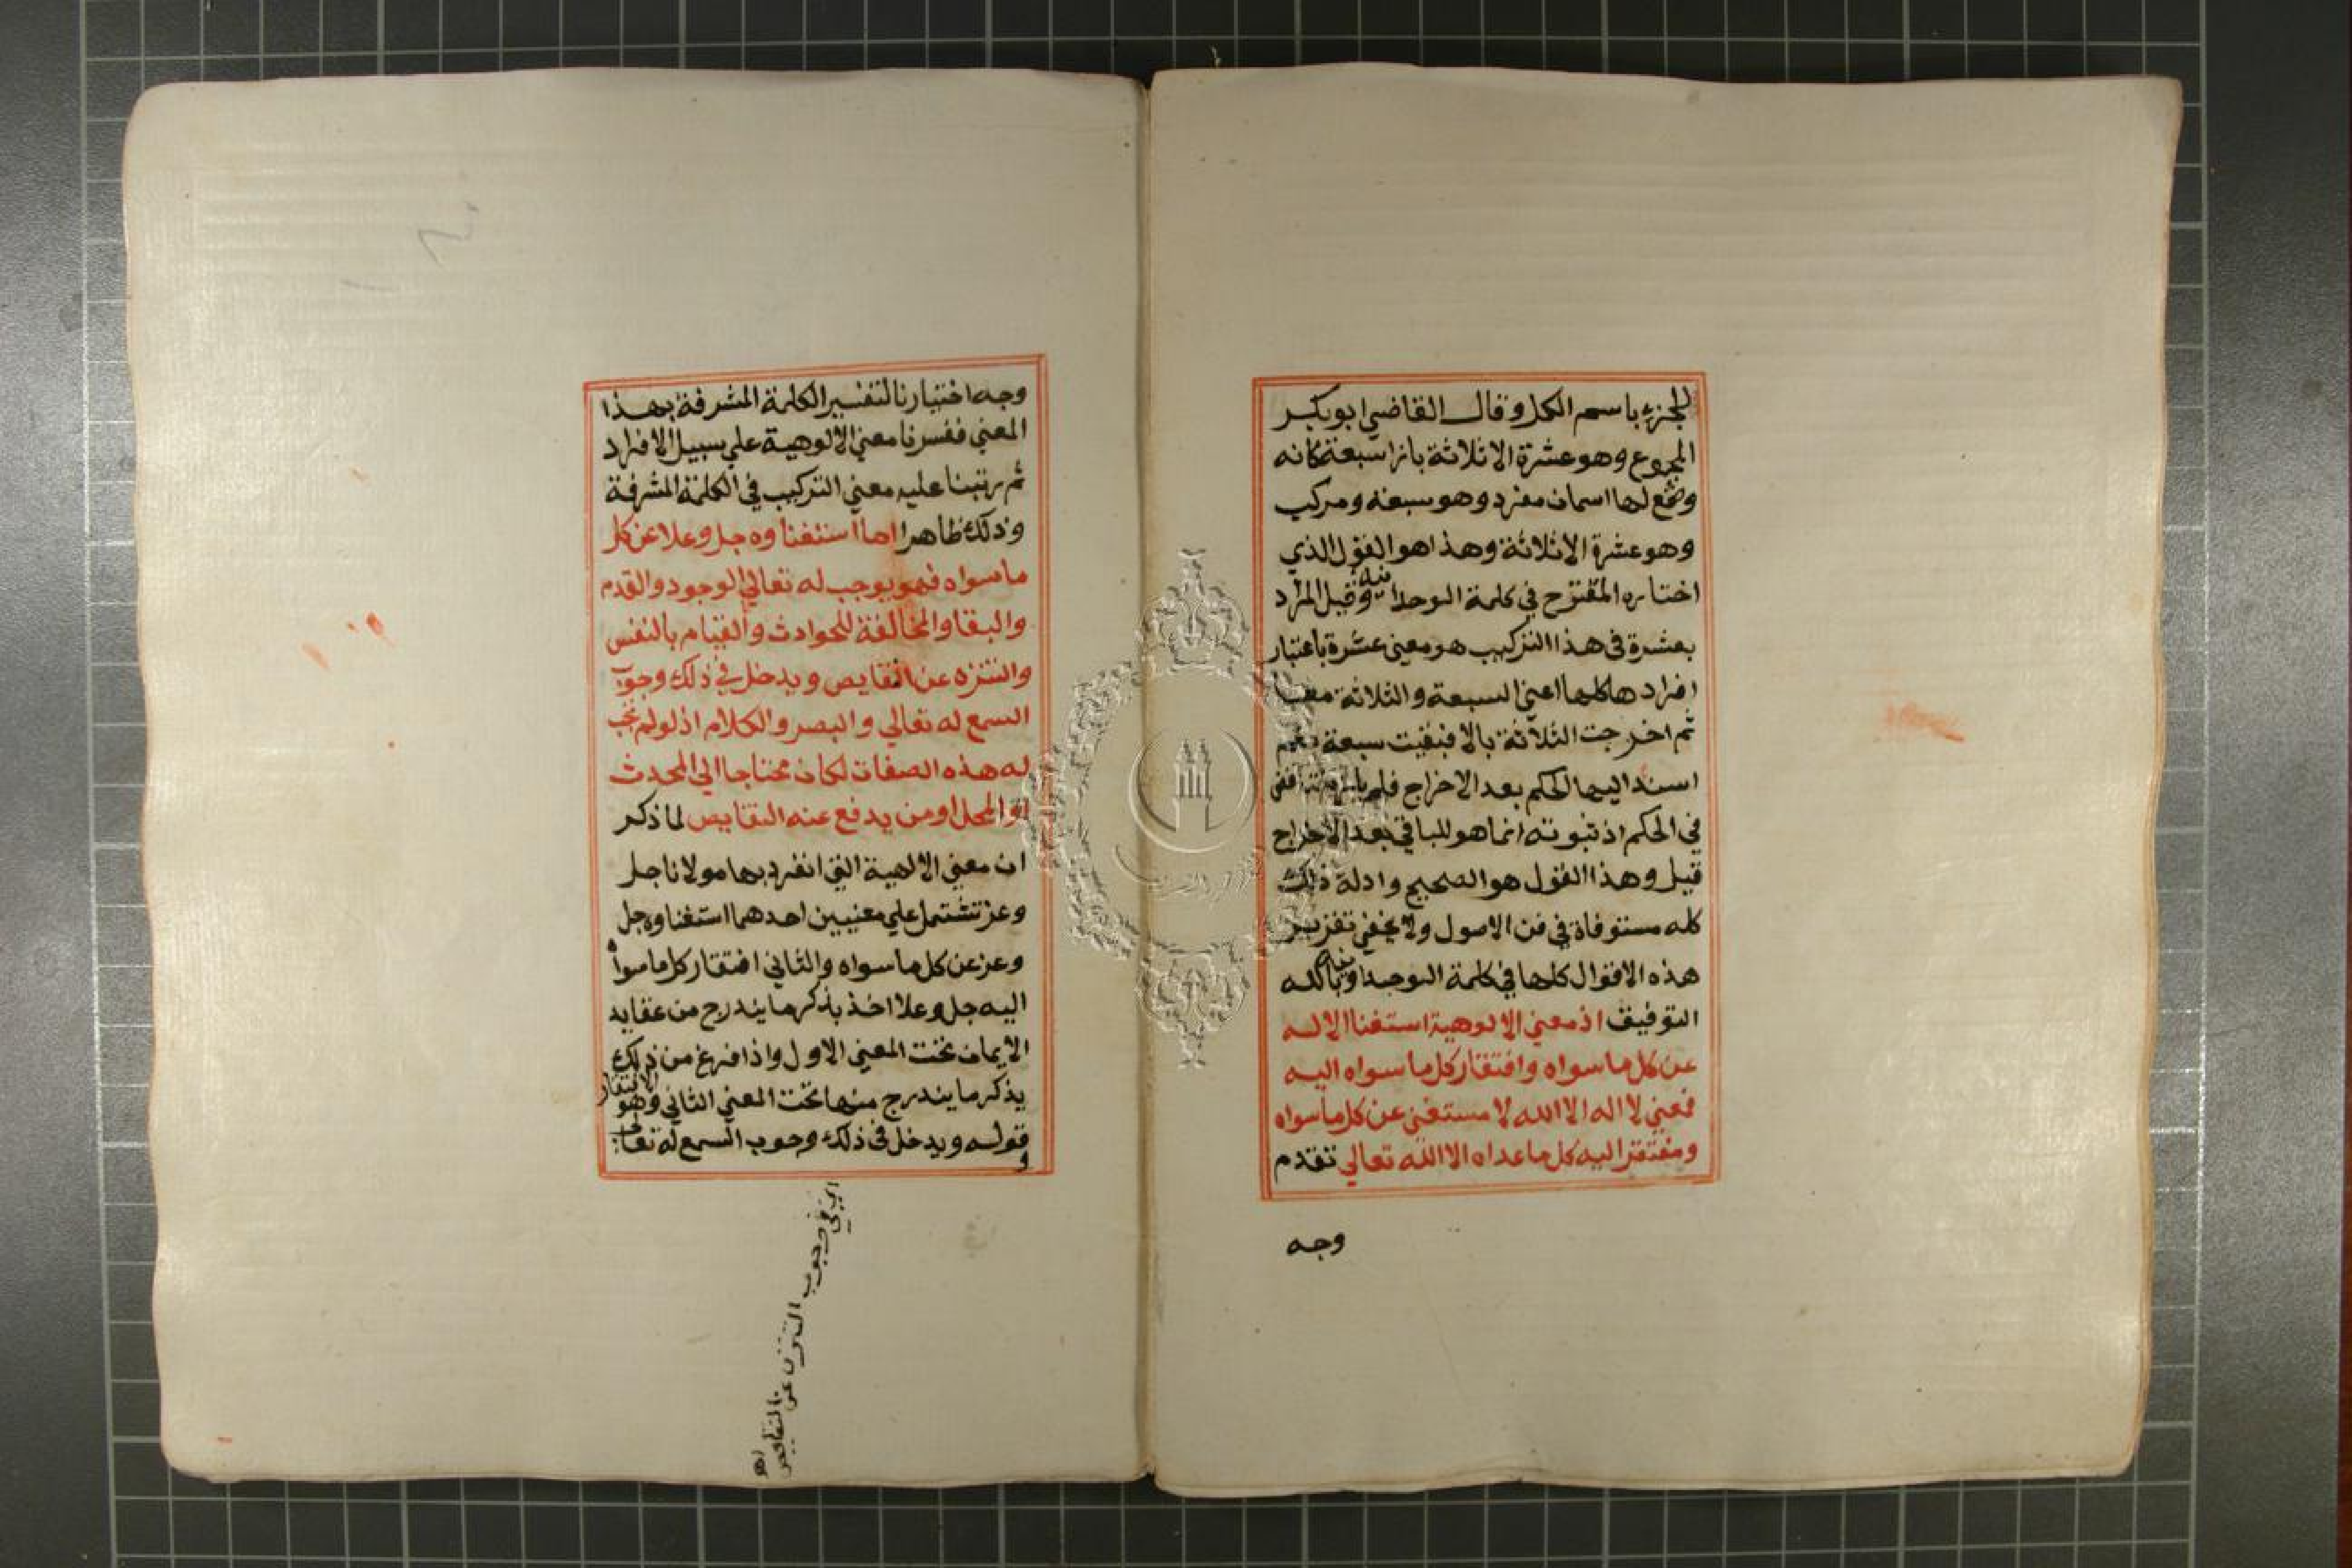 الجزء باسم الكل وقال القاضي ابو بكر
المجموع وهو عشرة الا ثلاثة بازا سبعة كانه
وضع لها اسمان مفرد وهو سبعة ومركب
وهو عشرة الا ثلاثة وهذا هو القول الذي
اختاره المقترح في كلمة الوحدانيه وقيل المراد
بعشرة في هذا التركيب هو معني عشرة باعتبار
افرادها كلها اعني السبعة والثلاثة معا
ثم اخرجت الثلاثة بالا فبقيت سبعة ثم
اسند اليها الحكم بعد الاخراج فلم يلزم تناقض
في الحكم اذ ثبوته انما هو للباقي بعد الاخراج
قيل وهذا القول هو الصحيح وادلة ذلك
كله مستوفاة في فن الاصول ولا يخفي تقرير
هذه الاقوال كلها في كلمة الوحدانيه وبالله
التوفيق اذ معني الالوهية استغنا الاله
عن كل ما سواه وافتقار كل ما سواه اليه
فمعني لا اله الا الله لا مستغني عن كل ما سواه
ومفتقر اليه كل ما عداه الا الله تعالي تقدم
وجه
وجه اختيارنا لتفسير الكلمة المشرفة بهذا
المعني ففسرنا معني الالوهية علي سبيل الافراد
ثم رتبنا عليه معني التركيب في الكلمة المشرفة
وذلك ظاهر اما استغناوه جل وعلا عن كل
ما سواه فهو يوجب له تعالي الوجود والقدم
والبقا والمخالفة للحوادث والقيام بالنفس
والتنزه عن النقايص ويدخل في ذلك وجوب
السمع له تعالي والبصر والكلام اذ لو لم تجب
له هذه الصفات لكان محتاجا الي المحدث
او المحل او من يدفع عنه النقايص لما ذكر
ان معني الالهية التي انفرد بها مولانا جل
وعز تشتمل علي معنيين احدهما استغناوه جل
وعز عن كل ما سواه والثاني افتقار كل ما سواه
اليه جل وعلا اخذ يذكر ما يندرج من عقايد
الايمان تحت المعني الاول واذا فرغ من ذلك
يذكر ما يندرج منها تحت المعني الثاني وهو الافتقار
قوله ويدخل في ذلك وجوب السمع له تعالي
و
اي في وجوب التنزه عن النقايص اهـ